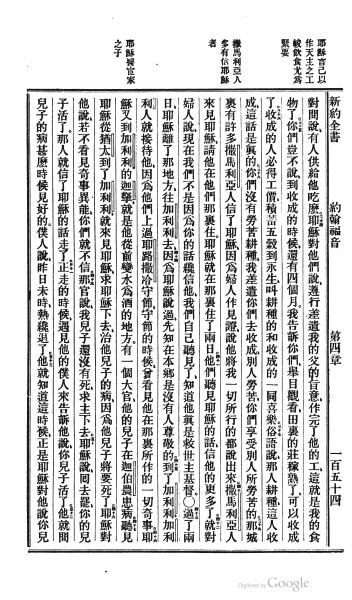 新約全書 約翰福音 第四章 一百五十四
耶穌言己以
作天主之工
較飲食尤爲
緊要
對問說有人供給他吃麼耶穌對他們說遵行差遣我的父的旨意作完了他的工這就是我的食
物了你們豈不說到收成的時候還有四個月我告訴你們舉目觀看田裏的莊稼熟了可以收成
了收成的人必得工價積蓄五穀到永生叫耕種的和收成的一同喜樂俗語說那人耕種這人收
成這話是眞的你們沒有勞苦耕種我差遣你們去收成別人勞苦你們享受別人所勞苦的那城
撒馬利亞人
多有信耶穌
者
裏有許多撒馬利亞人信了耶穌因爲婦人作見證說他將我一切所行的都說出來撒馬利亞人
來見耶穌請他在他們那裏住耶穌就在那裏住了兩日他們聽見耶穌的話信他的更多了就對
婦人說現在我們不是因爲你的話纔信他我們自己聽見了知道他眞是救世主基督〇過了兩
日耶穌離了那地方往加利利去因爲耶穌說過先知在本鄉是沒有人尊敬的到了加利利加利
利人就接待他因爲他們上過耶路撒冷守節守節的時候曾看見他在那裏所作的一切奇事耶
耶穌醫官家
之子
穌又到加利利的迦拿就是他從前變水爲酒的地方有一個大官他的兒子在迦伯農患病聽見
耶穌從猶太到了加利利就來見耶穌求耶穌下去治他兒子的病因爲他兒子將要死了耶穌對
他說若不看見奇事異能你們就不信那官說我兒子還沒有死求主下去耶穌說回去罷你的兒
子活了那人就信了耶穌的話走了正走的時候遇見他的僕人來告訴他說你兒子活了他就問
兒子的病甚麼時候見好的僕人說昨日未時熱纔退了他就知道這時候正是耶穌對他說你兒
Digitized by Google